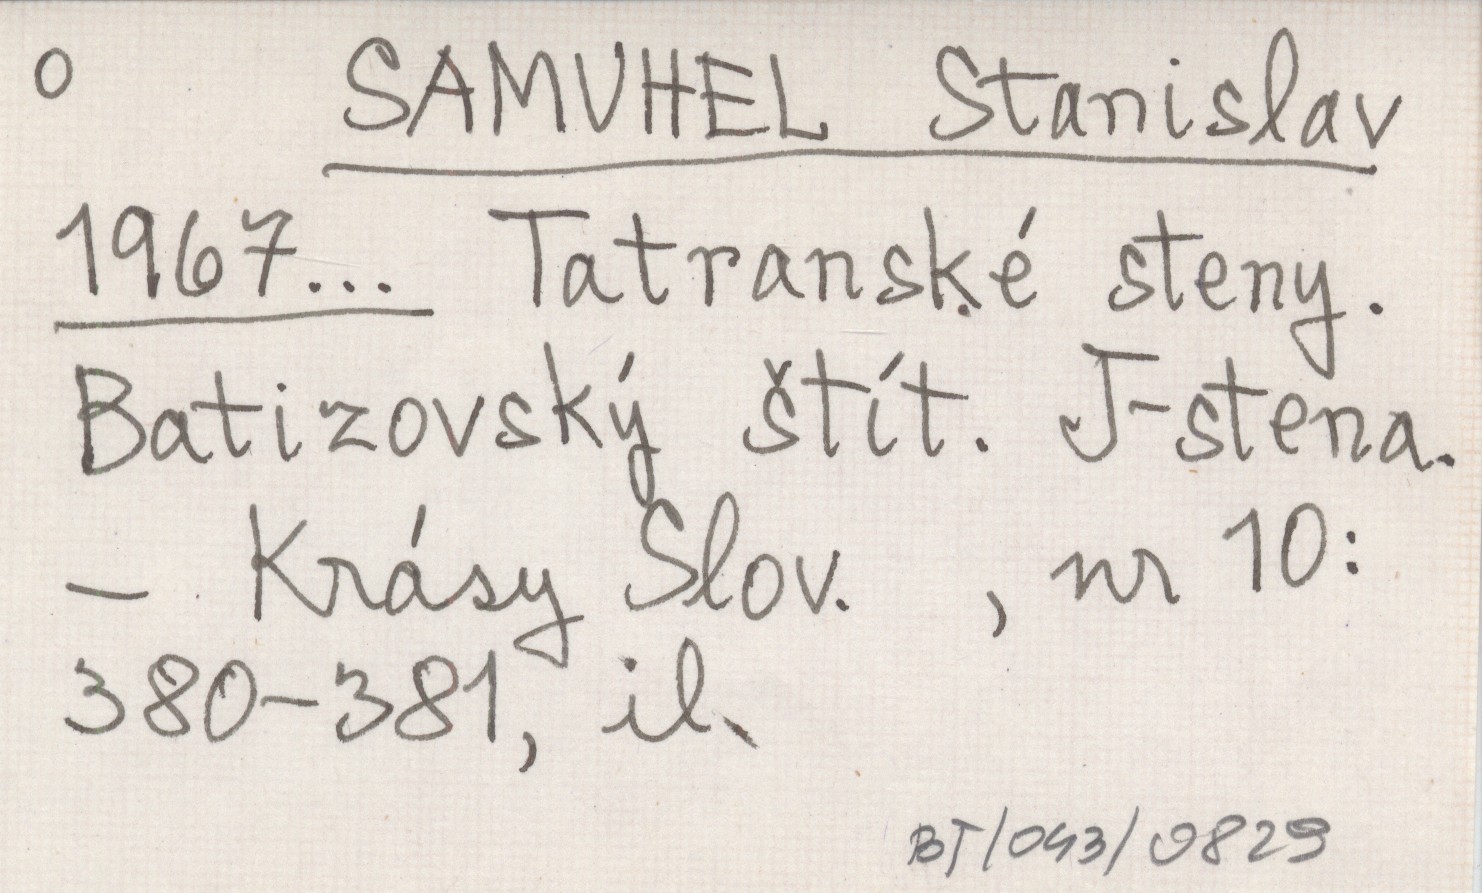 o SAMUHEL Stanislav
1967... Tatranské steny.
Batizovský štít. J-stena.
— Krásy Slov. , nr 10:
380-381, il.
BT/043/0829